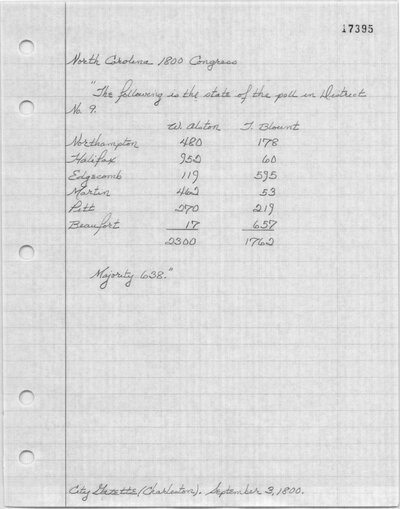 17395
North Carolina 1800 Congress
"The following is the state of the poll in District
No. 9.
W. Alston T. Blount
Northampton 480 178
Halifax 952 60
Edgecomb 119 595
Martin 462 53
Pitt 270 219
Beaufort 17 657
2300 1762
Majority 638."
City Gazette (Charleston). September 3, 1800.